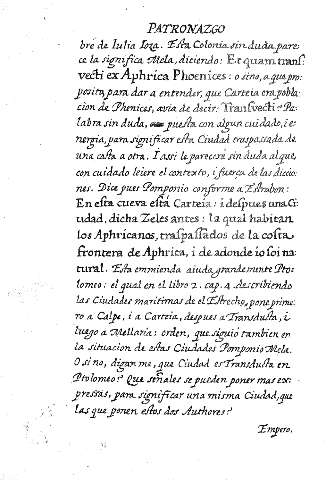 PATRONAZGO
bre de Iulia Ioza. Esta Colonia sin duda pare
ce la significa Mela, diciendo: Et quam trans
vecti ex Aphrica Phoenices: o sino, a que pro
posito, para dar a entender, que Carteia era pobla
cion de Phenices, avia de decir: Transvecti? Pa
labra sin duda, puesta con algun cuidado, i e
nergia, para significar esta Ciudad traspassada de
una costa a otra. I assi le parecerè sin duda al que,
con cuidado leiere el contexto, i fuerça de las diccio
nes. Dice pues Pomponio conforme a Estrabon:
En esta cueva està Carteia: i despues una Ci
udad, dicha Zeles antes: la qual habitan
los Aphricanos, traspassados de la costa
frontera de Aphrica, i de adonde io soi na
tural. Esta enmienda aiuda grandemente Pto
lomeo: el qual en el libro 2. cap. 4. describiendo
las Ciudades maritimas de el Estrecho, pone prime
ro a Calpe, i a Carteia, despues a Transducta, i
luego a Mellaria: orden, que siguiò tambien en
la situacion de estas Ciudades Pomponio Mela.
O si no, diganme, que Ciudad es Transducta en
Ptolomeo? Que señales se pueden poner mas ex-
pressas, para significar una misma Ciudad, que
las que ponen estos dos Authores?
Empero.